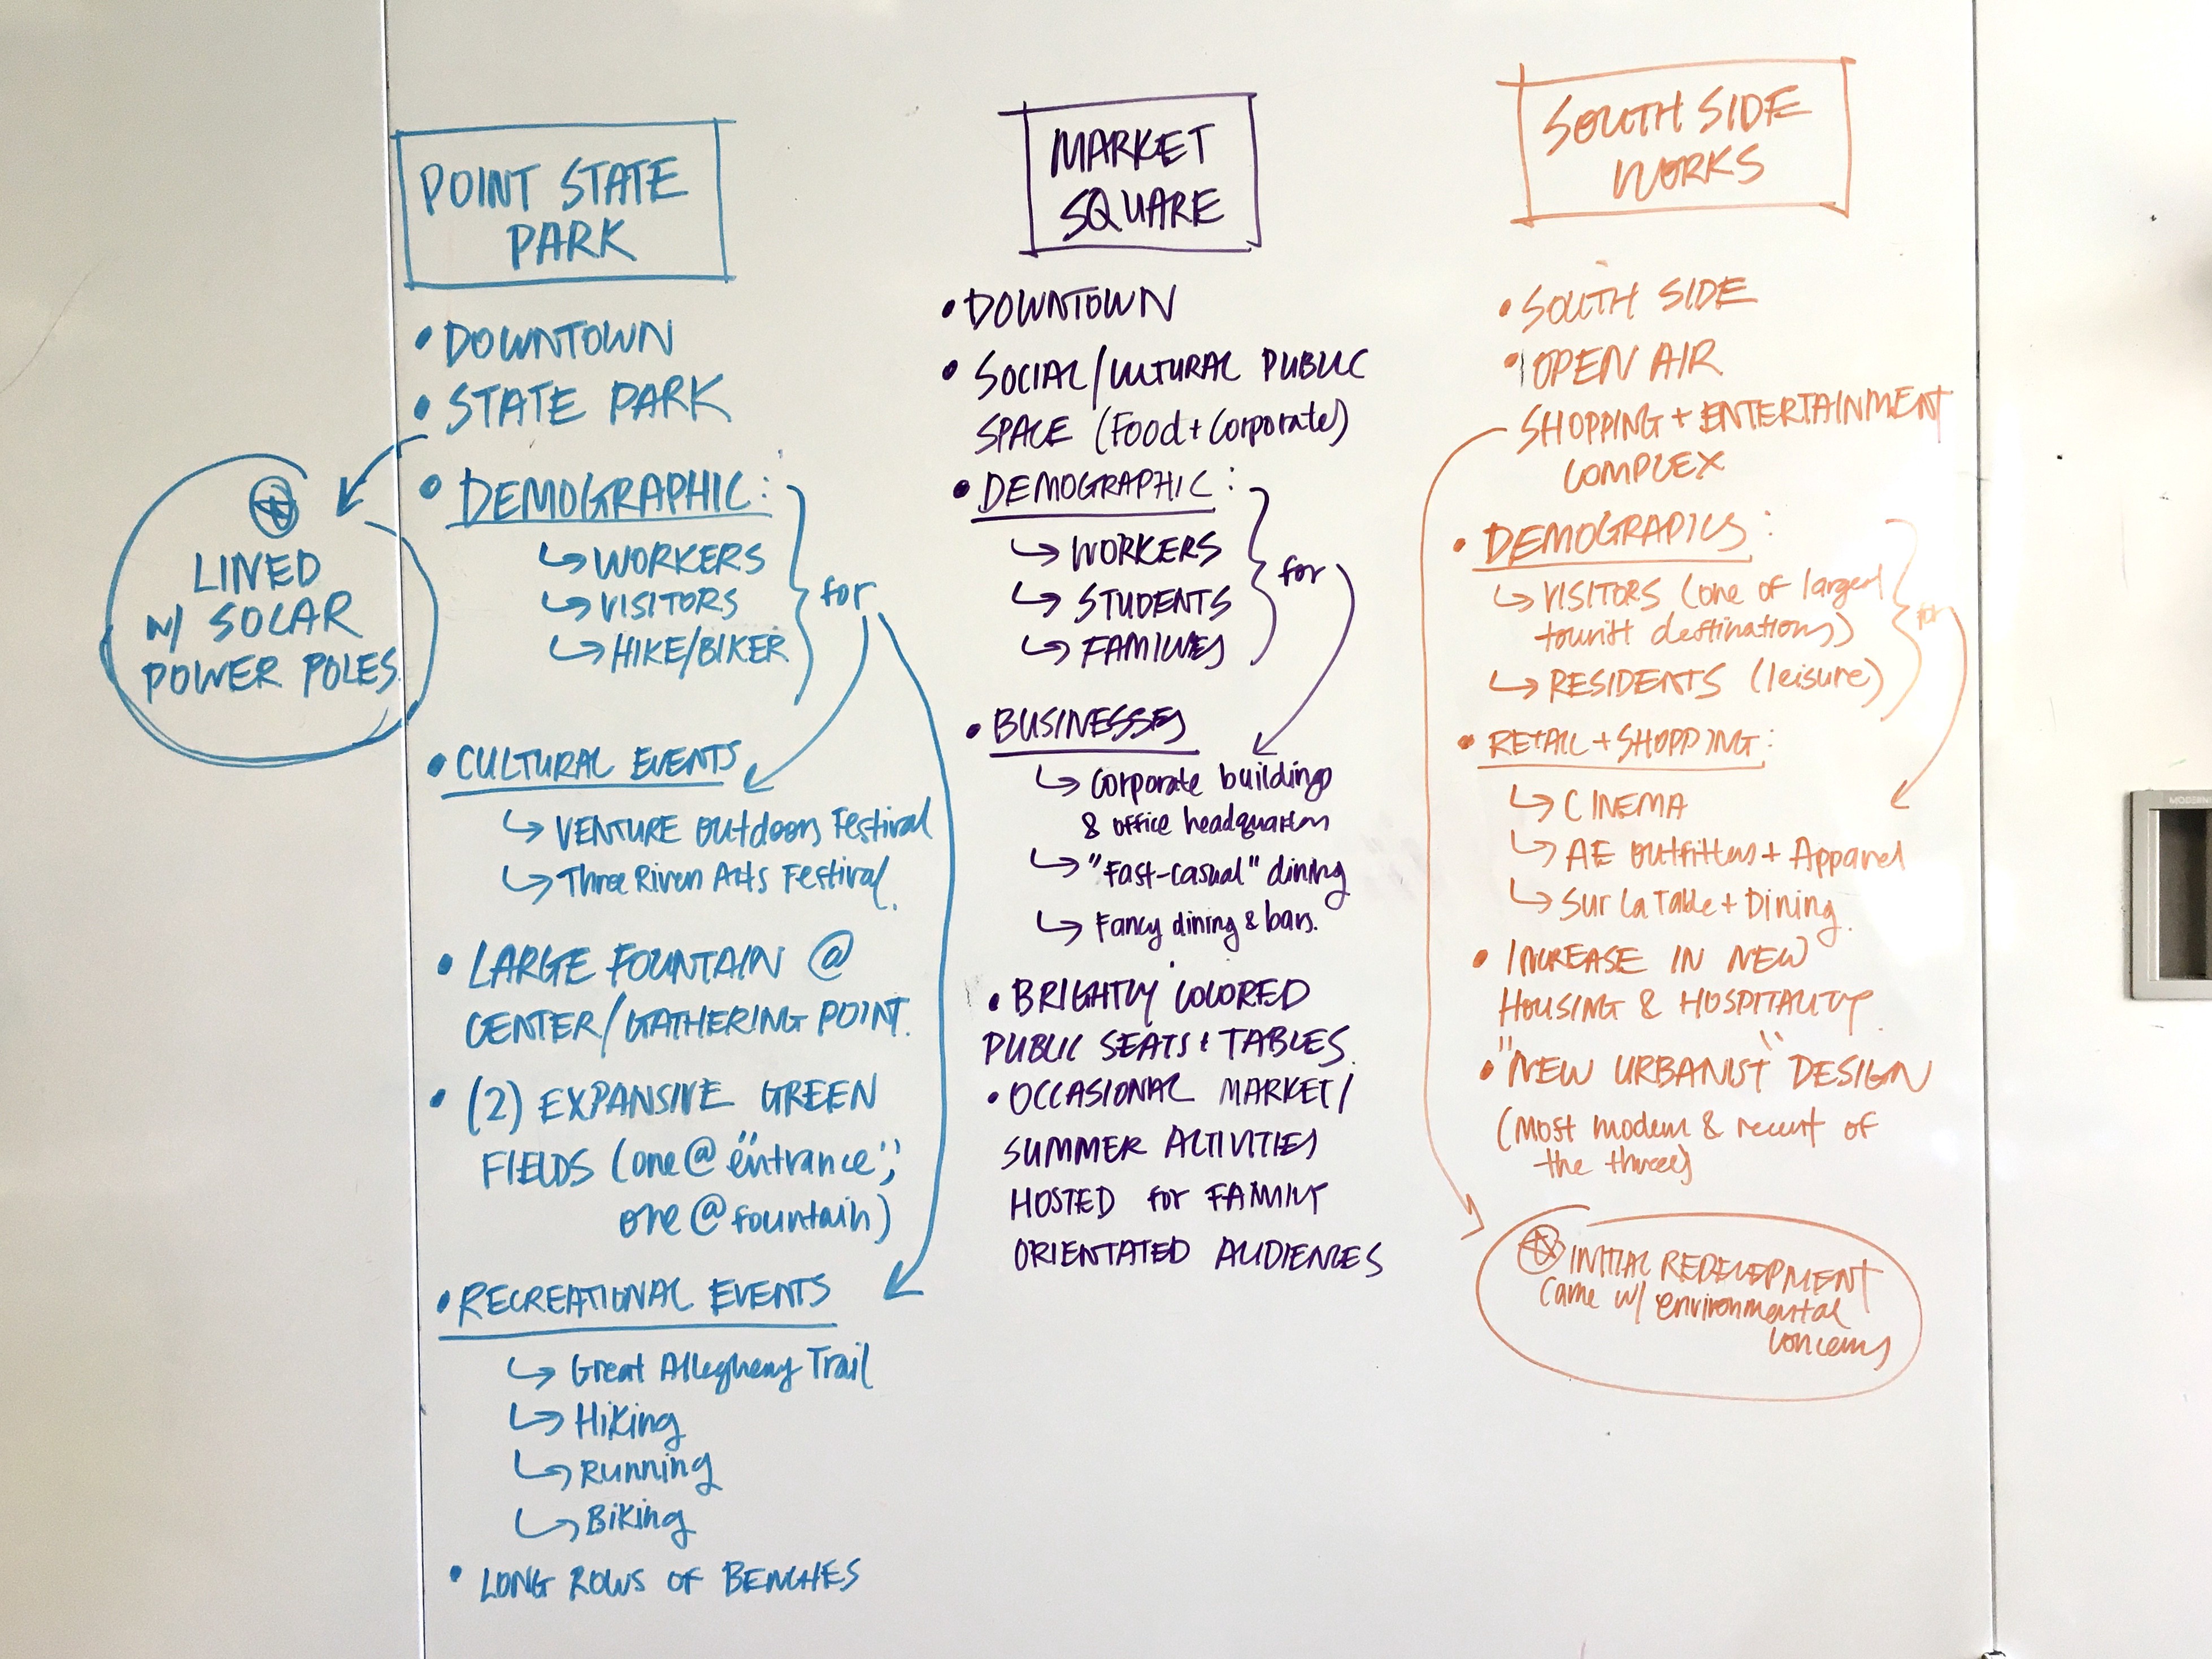 POINT STATE
PARK
• DOWNTOWN
• STATE PARK
LINED
W/ SOLAR
POWER POLES.
• DEMOGRAPHIC:
↳ WORKERS
↳ VISITORS
↳ HIKE/BIKER
for
• CULTURAL EVENTS
↳ VENTURE Outdoors Festival
↳ Three Rivers Arts Festival.
• LARGE FOUNTAIN @
CENTER/GATHERING POINT.
• (2) EXPANSIVE GREEN
FIELDS (one @ "entrance";
one @ fountain)
• RECREATIONAL EVENTS
↳ Great Allegheny Trail
↳ Hiking
↳ Running
↳ Biking
• LONG ROWS OF BENCHES
MARKET
SQUARE
• DOWNTOWN
• SOCIAL/CULTURAL PUBLIC
SPACE (Food + Corporate)
• DEMOGRAPHIC:
↳ WORKERS
↳ STUDENTS
↳ FAMILIES
for
• BUSINESSES
↳ Corporate buildings
& office headquarters
↳ "Fast-casual" dining
↳ Fancy dining & bars.
• BRIGHTLY COLORED
PUBLIC SEATS + TABLES.
• OCCASIONAL MARKET/
SUMMER ACTIVITIES
HOSTED for FAMILY
ORIENTATED AUDIENCES
SOUTH SIDE
WORKS
• SOUTH SIDE
• OPEN AIR
SHOPPING + ENTERTAINMENT
COMPLEX
• DEMOGRAPICS:
↳ VISITORS (one of largest
tourist destinations)
↳ RESIDENTS (leisure)
for
• RETAIL + SHOPPING:
↳ CINEMA
↳ AE Outfitters + Apparel
↳ Sur La Table + Dining.
• INCREASE IN NEW
HOUSING & HOSPITALITY.
• "NEW URBANIST" DESIGN
(Most modern & recent of
the three)
INITIAL REDEVELOPMENT
Came w/ environmental
concerns
MODERN